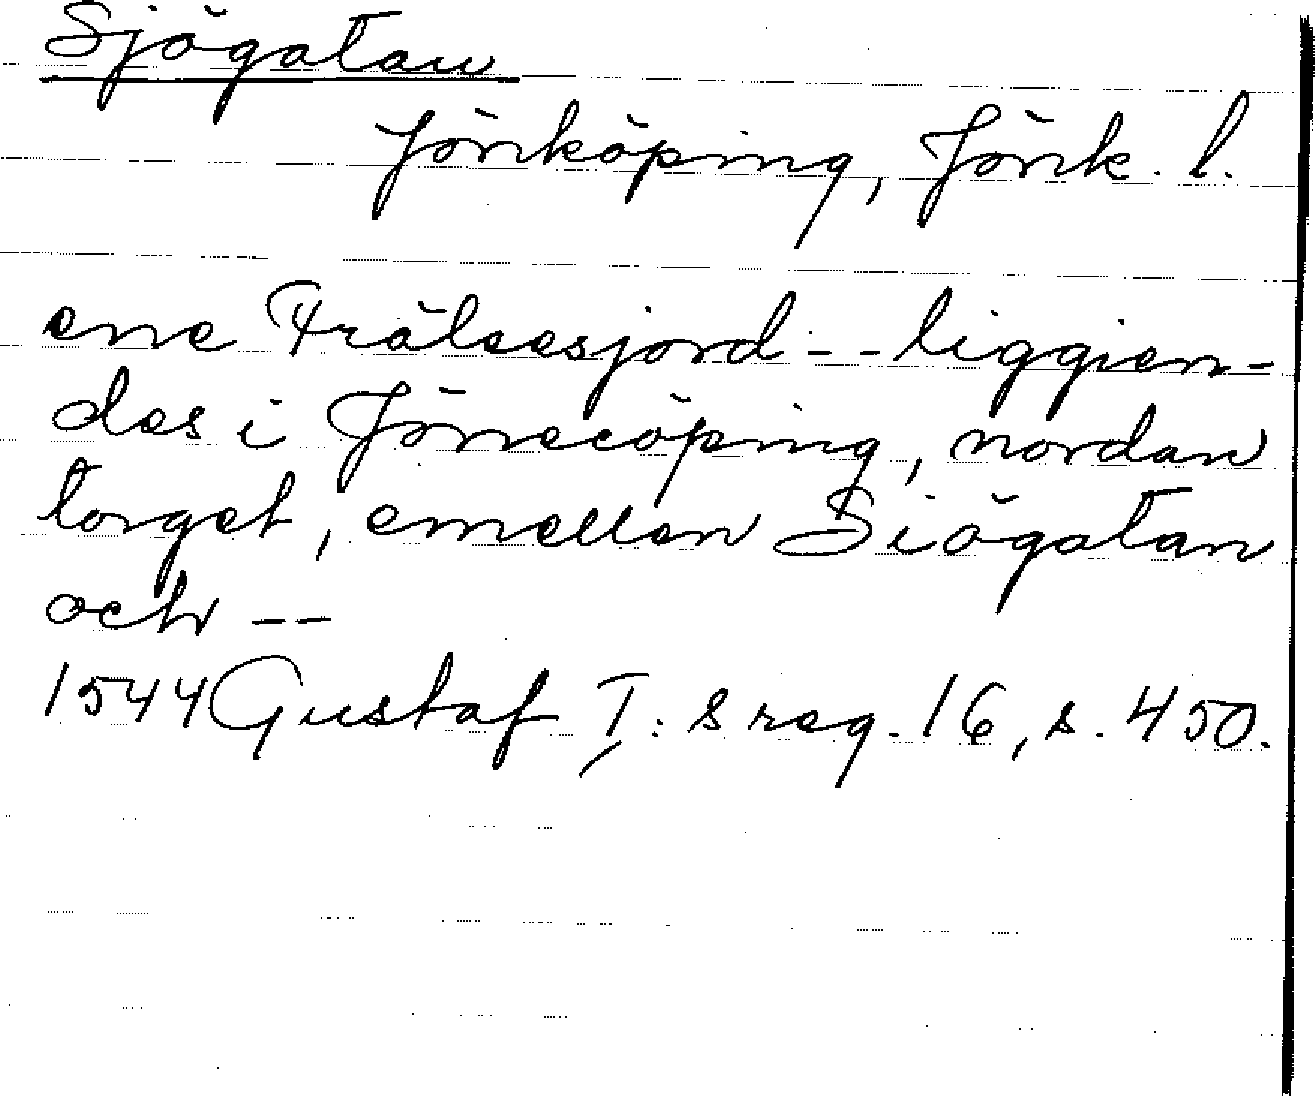 Sjögatan
Jönköping, Jönk. l.
ene Frälsesjord - - liggien-
des i Jönecöping, nordan
torget, emellen Siögatan
och - -
1544 Gustaf I:s reg. 16, s. 450.